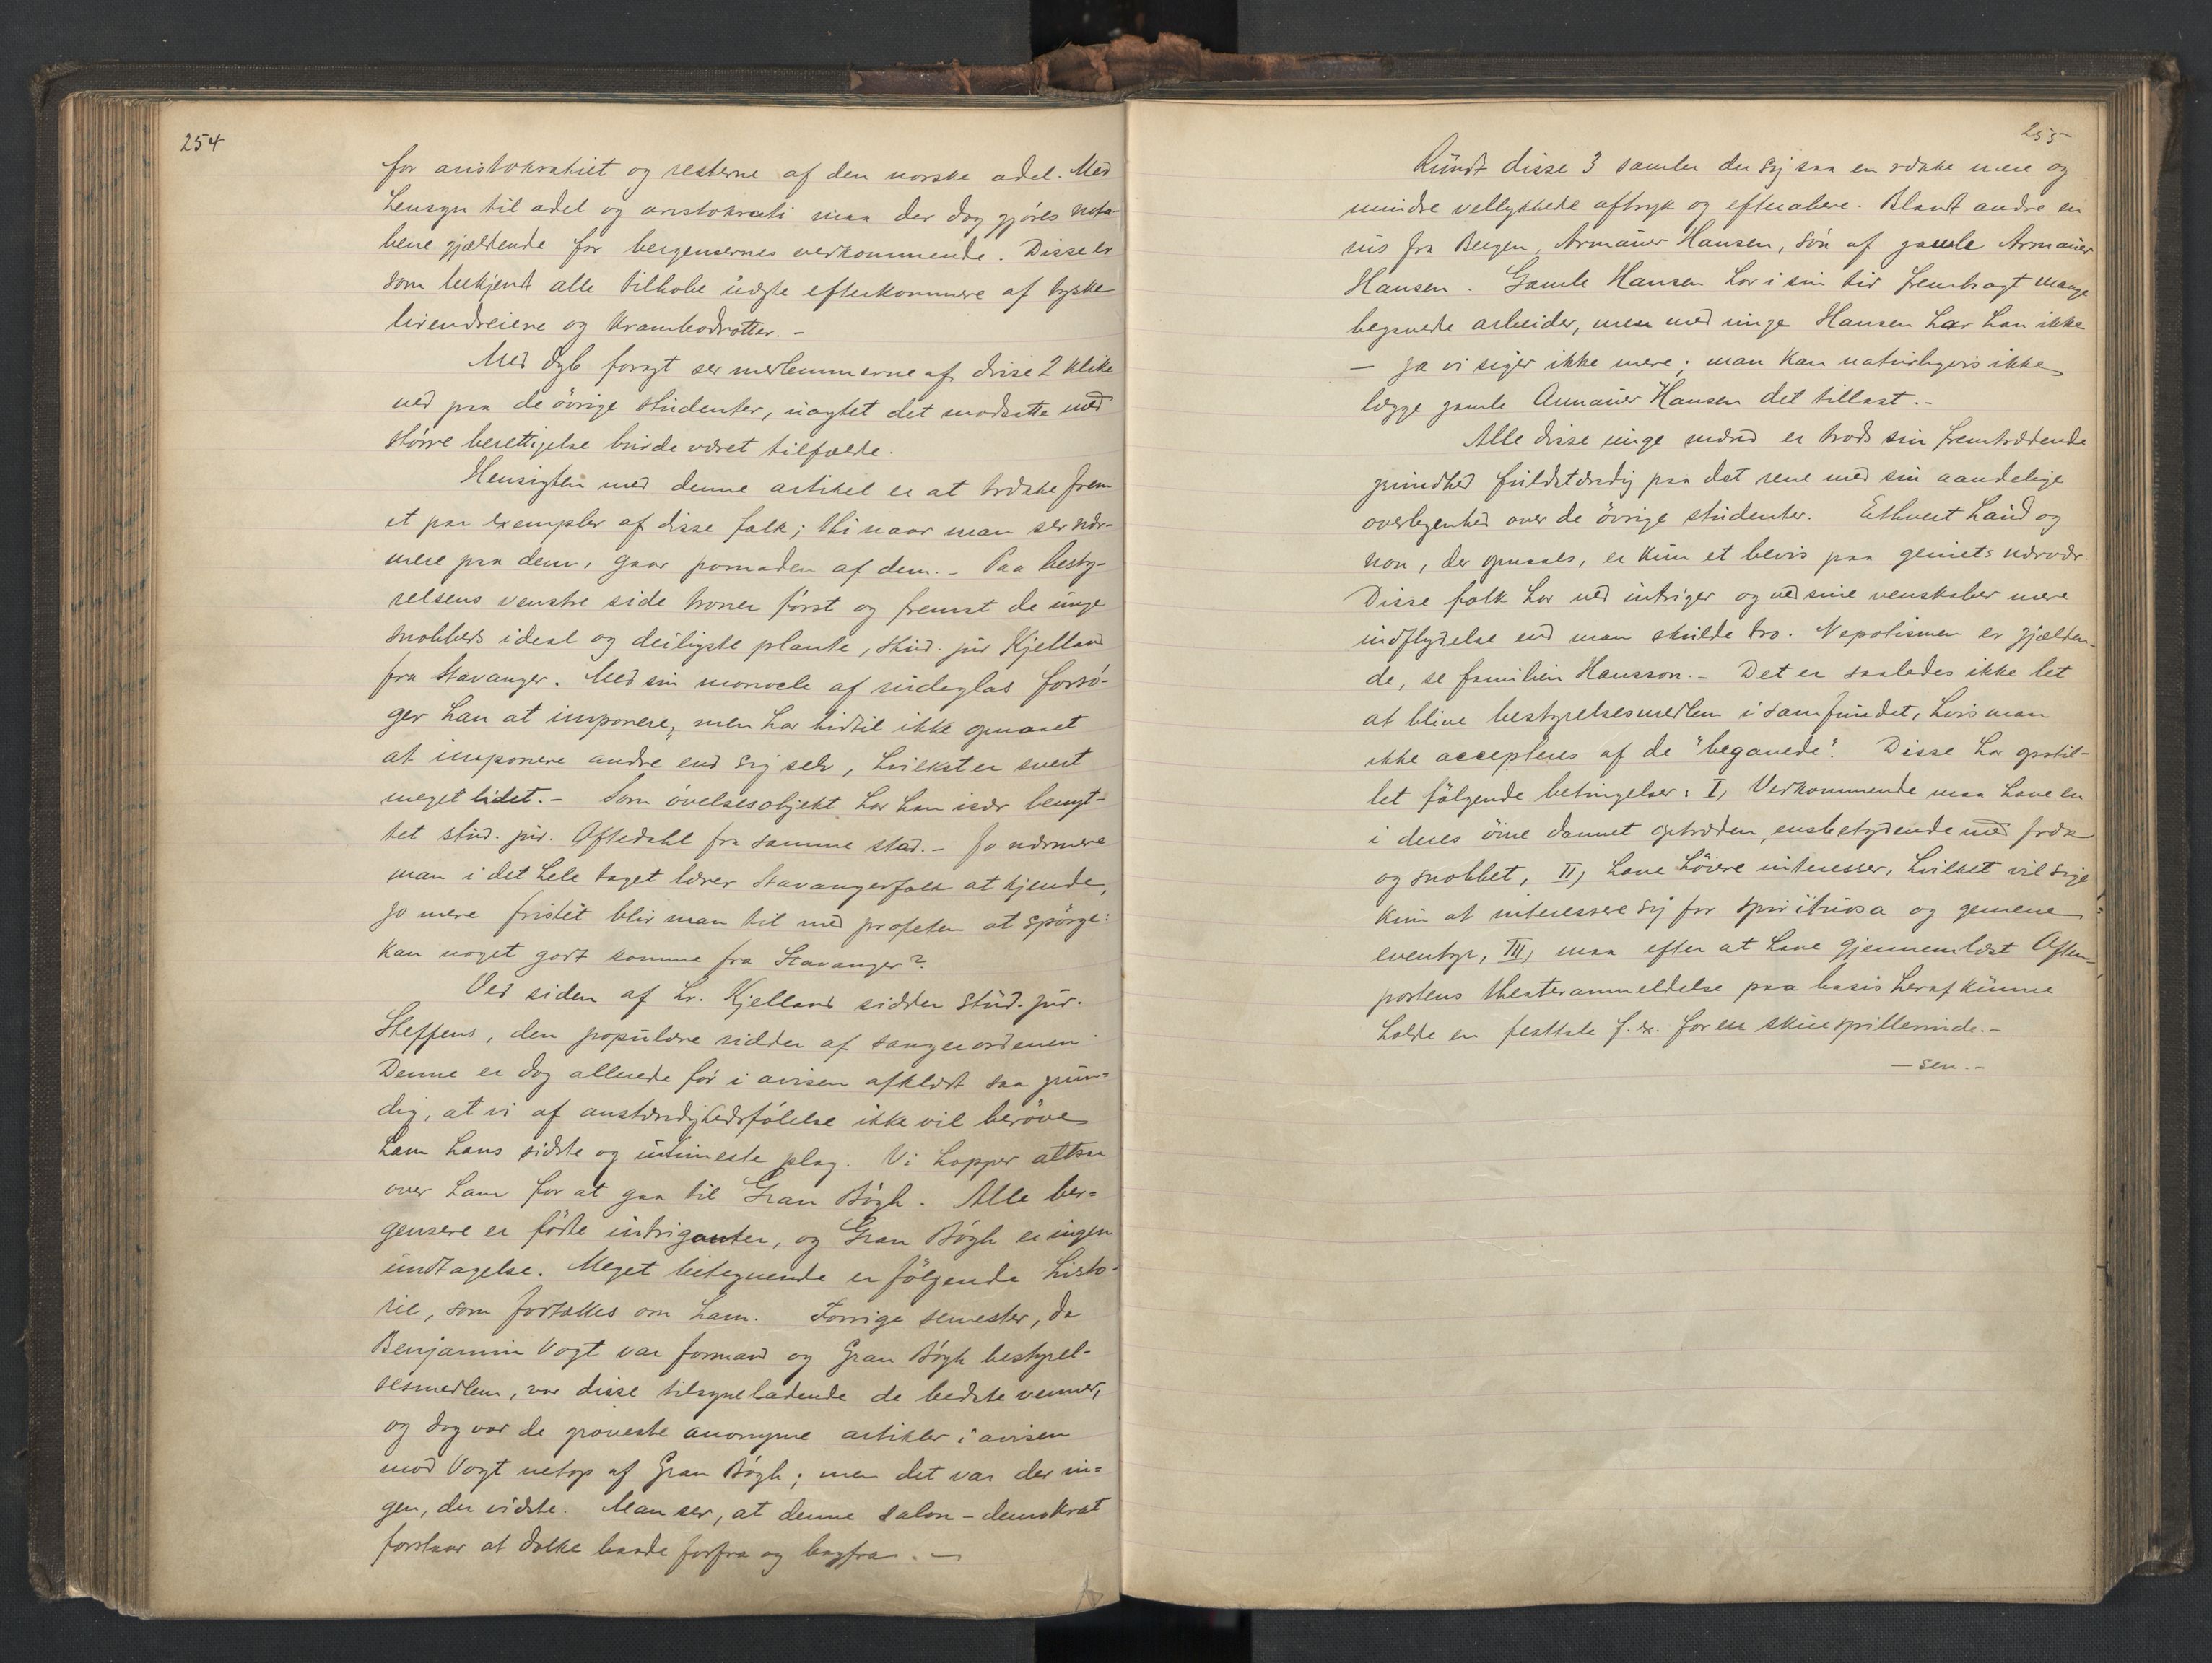 254
for aristokratiet og resterne af den norske adel. Med
hensyn til adel og aristokrati maa der dog gjøres nota-
bene gjældende for bergensernes vedkommende. Disse er
som bekjent alle tilhobe uægte efterkommere af tyske
lirendreiere og krambodrotter. –
Med dyb foragt ser medlemmerne af disse 2 klike
ned paa de øvrige studenter, uagtet det modsatte med
større berettigelse burde været tilfælde.
Hensigten med denne artikel er at trække frem
et par exempler af disse folk; thi naar man ser nær-
mere paa dem, gaar pomaden af dem. – Paa besty-
relsens venstre side troner først og fremst de unge
snobbers ideal og deiligste plante, stud. jur Kjelland
fra Stavanger. Med sin monocle af rudeglas forsø-
ger han at imponere, men har hidtil ikke opnaaet
at imponere andre end sig selv, hvilket er svert
meget lidet. – Som øvelsesobjekt har han især benyt-
tet stud. jur. Oftedahl fra samme stad. – Jo nærmere
man i det hele taget lærer Stavangerfolk at kjende,
jo mere fristet blir man til med profeten at spørge:
Kan noget godt komme fra Stavanger?
Ved siden af hr. Kjelland sidder stud. jur.
Steffens, den populære ridder af sangerordenen.
Denne er dog allerede før i avisen afklædt saa grun-
dig, at vi af anstændighedsfølelse ikke vil berøve
ham hans sidste og intimeste plag. Vi hopper altsaa
over ham for at gaa til Gran Bøgh. Alle ber-
gensere er fødte intriganter, og Gran Bøgh er ingen
undtagelse. Meget betegnende er følgende histo-
rie, som fortælles om ham. Forrige semester, da
Benjamin Vogt var formand og Gran Bøgh bestyrel-
sesmedlem, var disse tilsyneladende de bedste venner,
og dog var de groveste anonyme artikler i avisen
mod Vogt netop af Gran Bøgh; men det var der in-
gen, der vidste. Man ser, at denne salon-demokrat
forstaar at dolke baade forfra og bagfra. –
255
Rundt disse 3 samler der sig saa en række mere og
mindre vellykkede aftryk og efterabere. Blandt andre en
sus fra Bergen, Armauer Hansen, søn af gamle Armauer
Hansen. Gamle Hansen har i sin tid frembragt mange
begavede arbeider, men med unge Hansen har han ikke
– ja vi siger ikke mere; man kan naturligvis ikke
lægge gamle Armauer Hansen det tillast. –
Alle disse unge mænd er trods sin fremtrædende
grundhed fuldstændig paa det rene med sin aandelige
overlegenhed over de øvrige studenter. Ethvert haud og
non, der opnaaes, er kun et bevis paa geniets nærvær.
Disse folk har ved intriger og ved sine venskaber mere
indflydelse end man skulde tro. Nepotismen er gjælden-
de, se familien Hansson. – Det er saaledes ikke let
at blive bestyrelsesmedlem i samfundet, hvis man
ikke accepteres af de "begavede". Disse har opstil-
let følgende betingelser: I, Vedkommende maa have en
i deres øine dannet optræden, ensbetydende med fræk
og snobbet, II, have høiere interesser, hvilket vil sige
kun at interessere sig for spirituosa og gemene
eventyr, III, maa efter at have gjennemlæst Aften-
postens theateranmeldelse paa basis heraf kunne
holde en festtale f. ex. for en skuespillerinde. –
– sen. –